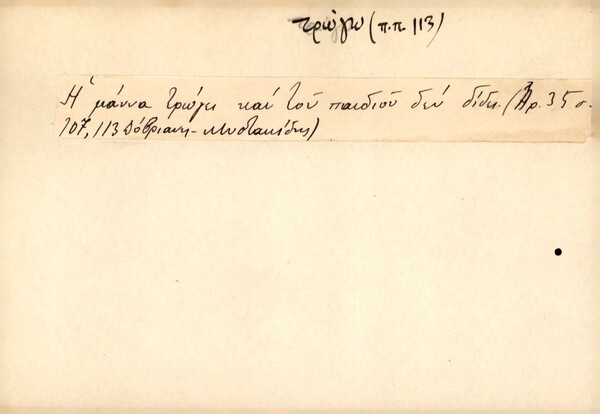 τρώγω (π.π. 113)
Ἡ μάννα τρώγει καί τοῦ παιδιοῦ δέν δίδει. (Ἀρ. 35 σ.
107, 113 Δόβριανη - Μυστακίδης)